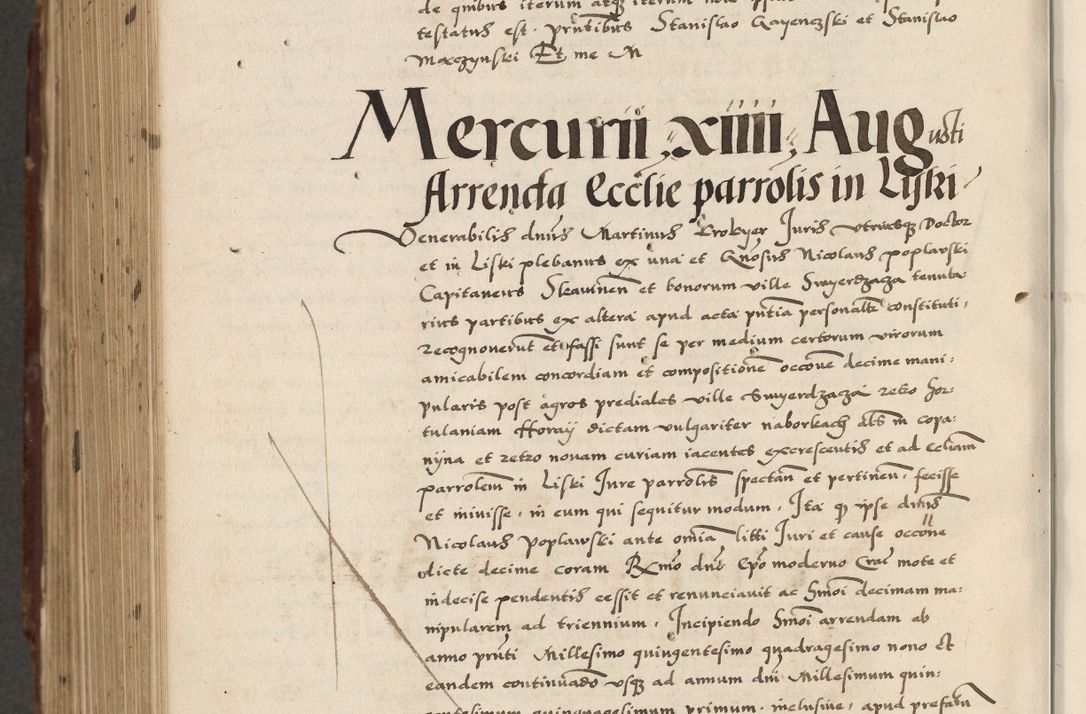 de quibus iterum atq3 iterum
testatus est. pntibus Stanislao Gayenczski et Stanislao
Maczynski Et me M
Mercurii xiiii Augusti
Arrenda Ecclie parrolis in Lijski
Venerabilis dnus Martinus Crokyer Juris vtriusq3 Doctor
et in Liski plebanus ex una et Gnosus Nicolaus poplawski
Capitaneus Skawinen et bonorum ville Swyerdzaza tenuta-
rius partibus ex altera apud acta pntia personalr constituti,
recognouerut et fassi sunt se per medium certorum virorum
amicabilem concordiam et compositione occone decime mani-
pularis post agros prediales ville Swyerdzaza retro hor-
tulaniam Horaij dictam vulgariter naborkach als in copa-
nijna et retro nouam curiam iacentes excrescentis et ad Ecliam
parrolem in Liski Jure parrolis spectan et pertinen, fecisse
et iniuisse, in eum qui sequitur modum, Ita q ipse dnus
Nicolaus Poplawski ante omia litti Juri et cause occone
dicte decime coram Rxmo dno Epo moderno Crac mote et
indecise pendentis cessit et renunciauit ac Smoi decimam ma-
nipularem ad triennium, Incipiendo Smoi arrendam ab
anno pnti Millesimo quingentesimo quadragesimo nono et
eandem continuado vsq3 ad annum dni Millesimum quin-
gentesimum quinquagesimum primum inclusiue, apud prefatu